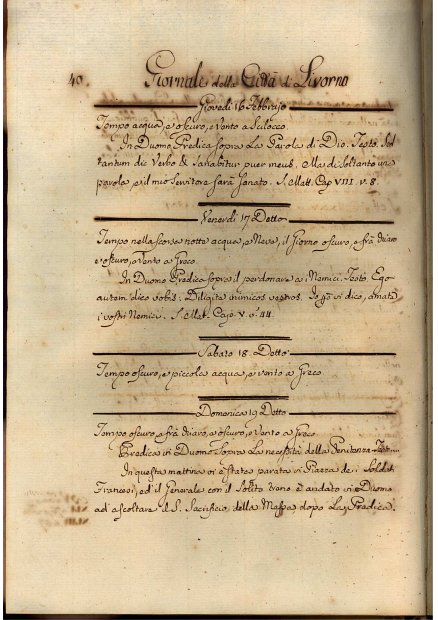 40. Giornale della Città di Livorno
Giovedi 16 Febbrajo
Tempo acqua, e oscuro, e vento a Scilocco.
In Duomo Predica sopra La Parola di Dio. Testo. Sol
tantum dic Verbo & Sanabitur puer meus. Ma di soltanto una
parola, e il mio servitore sarà sanato. S. Matt. Cap VIII. v. 8.
Venerdi 17 Detto
Tempo nella scorsa notte acqua, e Neve, il Giorno oscuro, e frà chiaro
e oscuro, e Vento a Greco.
In Duomo Predica sopra il perdonare a i Nemici. Testo Ego
autem dico vobis: Diligite inimicos vestros. Io vi dico, amate
i vostri Nemici. S. Mat. Capo V. v. 44.
Sabato 18. Detto
Tempo oscuro, e piccola acqua, e vento a Greco.
Domenica 19 Detto
Tempo oscuro, e frà chiaro, e oscuro, e Vento a Greco.
Predica in Duomo Sopra La necessità della Penitenza
In questa mattina vi è Stata parata in Piazza de i Soldati
Francesi, ed il Generale con il Solito è andato in Duomo
ad ascoltare il S. Sacrificio della Messa dopo La Predica.